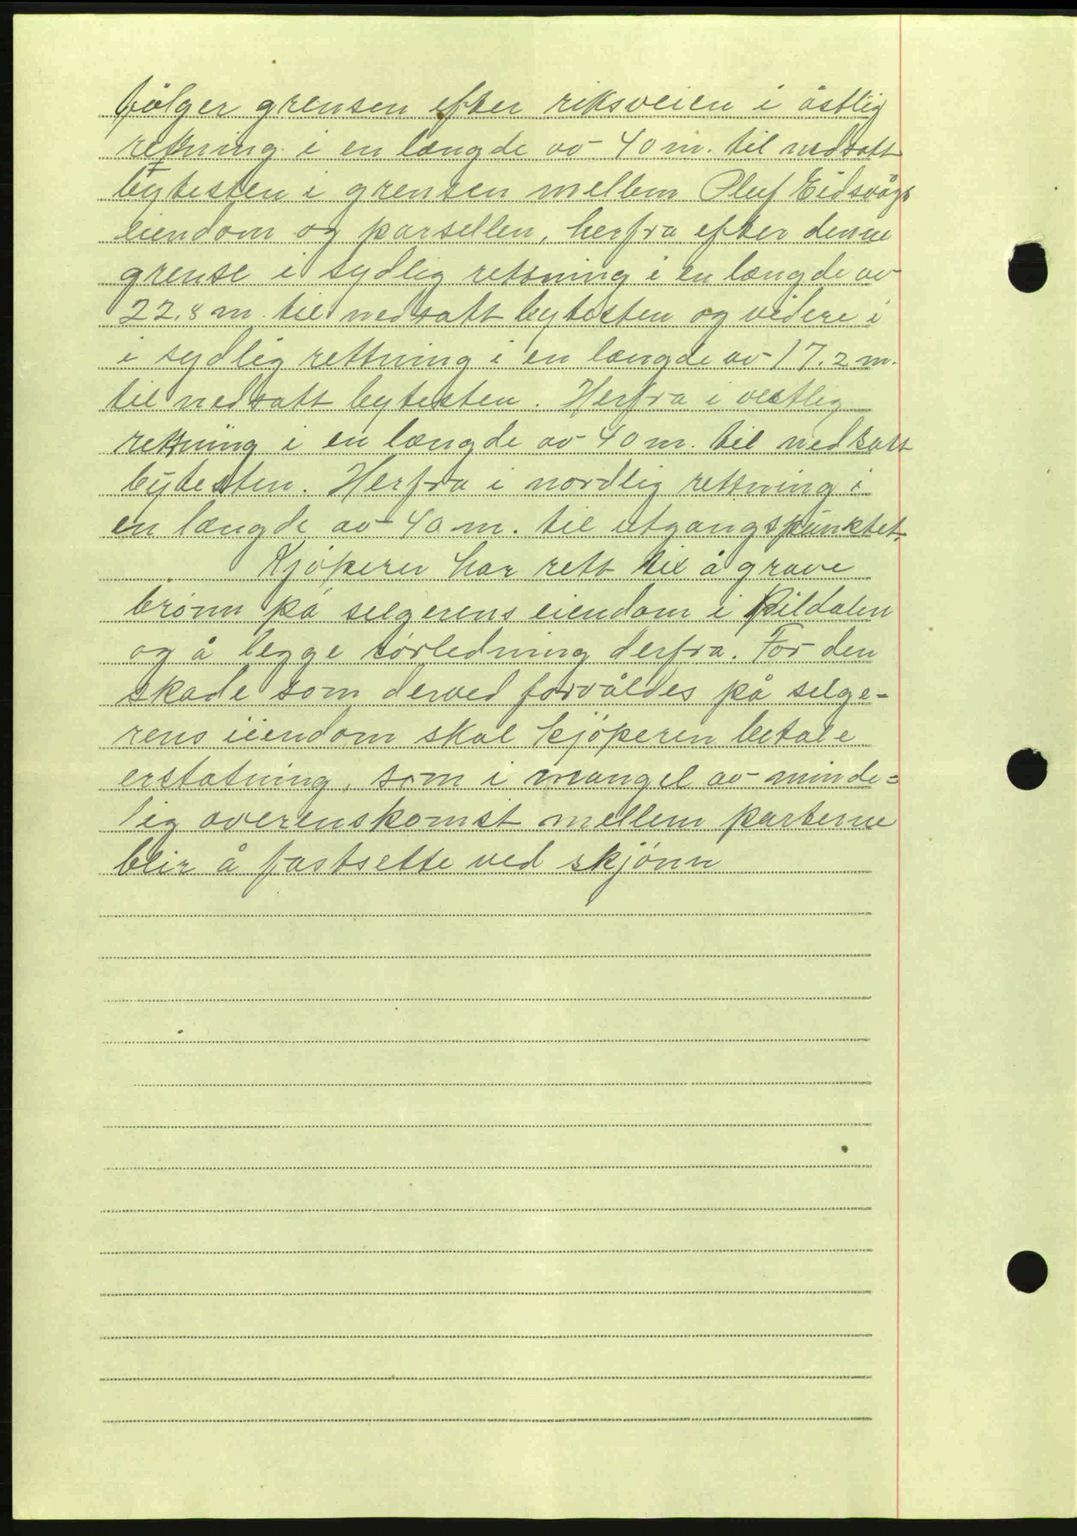 følger grensen efter riksveien i östlig
rettning i en længde av 40 m. til nedsatt
bytesten i grensen mellem Oluf Eidsvågs
eiendom og parsellen, herfra efter denne
grense i sydlig rettning i en længde av
22.8 m. til nedsatt bytesten og videre i
i sydlig rettning i en længde av 17.2 m.
til nedsatt bytesten. Herfra i vestlig
rettning i en længde av 40 m. til nedsatt
bytesten. Herfra i nordlig rettning i
en længde av 40 m. til utgangspunktet.
Kjöperen har rett til å grave
brönn på selgerens eiendom i Pildalen
og å legge rörledning derfra. For den
skade som derved forvåldes på selge-
rens eiendom skal kjöperen betale
erstatning, som i mangel av minde-
lig overenskomst mellem parterne
blir å fastsette ved skjönn